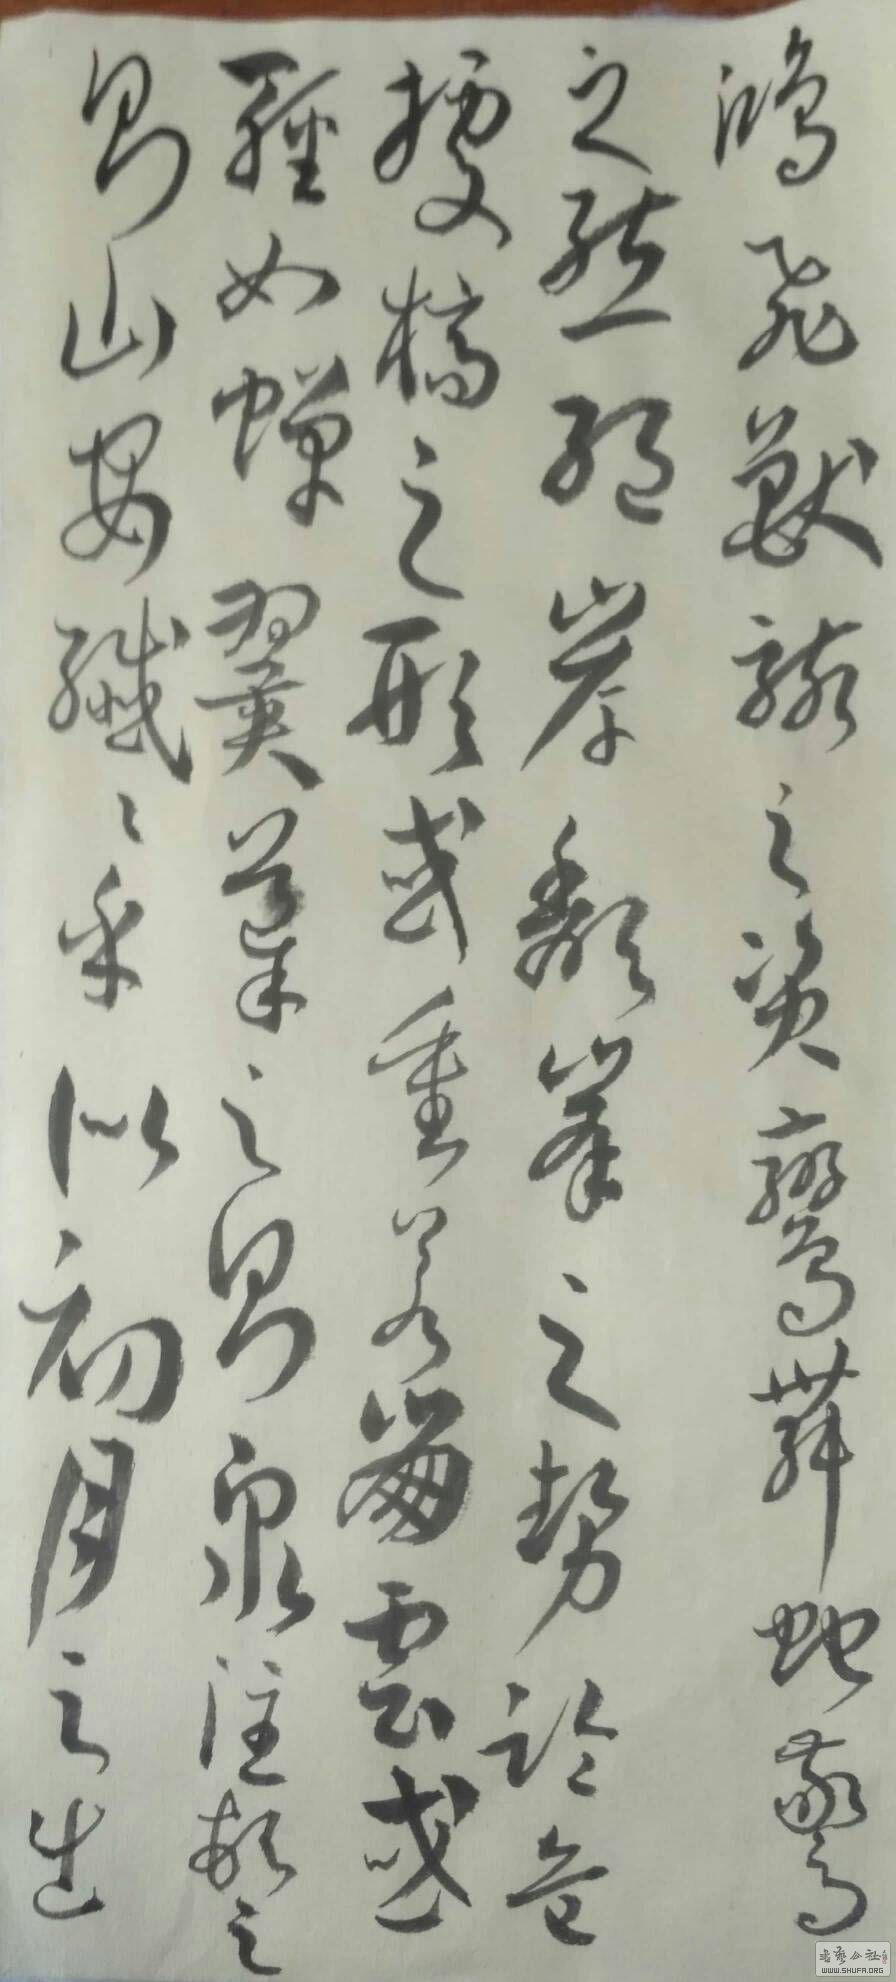 鸿飞兽骇之资鸾舞蛇惊
之态绝岸颓峰之势临危
据槁之形或重若崩云或
轻如蝉翼导之则泉注顿之
则山安纤纤乎似初月之出
书艺公社
WWW.SHUFA.ORG